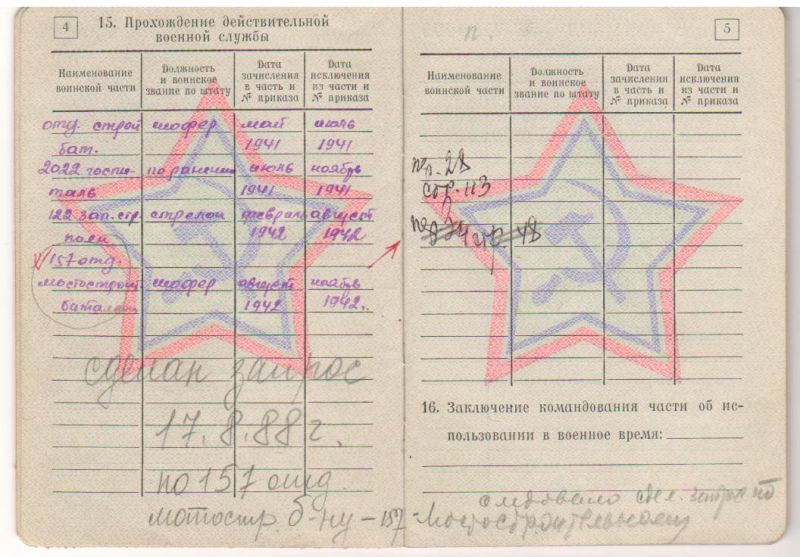 4
15. Прохождение действительной
военной службы
Наименование
воинской части
Должность
и воинское
звание по штату
Дата
зачисления
в часть и
№ приказа
Дата
исключения
из части и
№ приказа
отд. строй шофер май июль
бат. 1941 1941
2022 госпи- по ранении июль ноябрь
таль 1941 1941
122 зап. стр. стрелок февраль август
полк 1942 1942
157 отд.
мостостроит шофер август ноябрь
баталион 1942 1942.
сделан запрос
17.8.88 г.
по 157 отд.
мотостр. б-ну – 157 –
5
п.
Наименование
воинской части
Должность
и воинское
звание по штату
Дата
зачисления
в часть и
№ приказа
Дата
исключения
из части и
№ приказа
п. 28
стр. 113
стр. 48
16. Заключение командования части об ис-
пользовании в военное время:
следовало сдел. запрос по
Мостостроительному